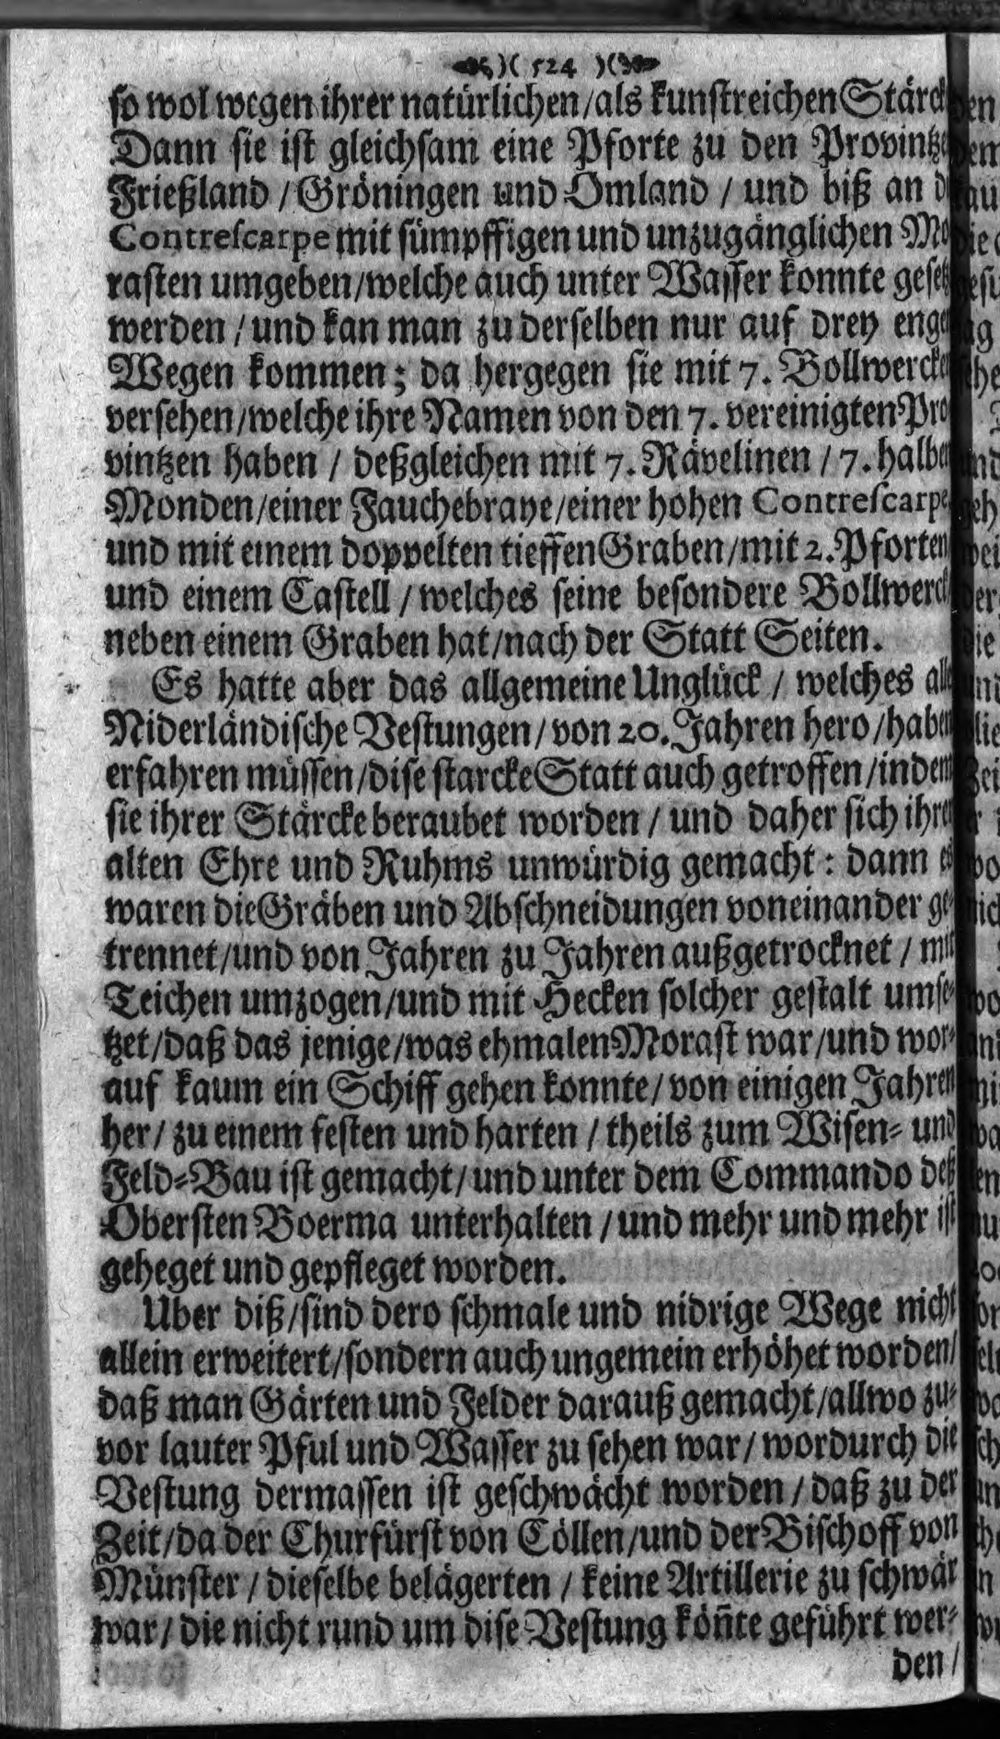 )( 524 )(
so wol wegen ihrer natürlichen/als kunstreichen Stärck
Dann sie ist gleichsam eine Pforte zu den Provintze
Frießland / Gröningen und Omland / und biß an d
Contrescarpe mit sümpffigen und unzugänglichen Mo
rasten umgeben/welche auch unter Wasser konnte gesetz
werden / und kan man zu derselben nur auf drey enge
Wegen kommen; da hergegen sie mit 7. Bollwercke
versehen/welche ihre Namen von den 7. vereinigten Pro
vintzen haben / deßgleichen mit 7. Rävelinen / 7. halben
Monden/einer Fauchebraye/einer hohen Contrescarpe
und mit einem doppelten tieffen Graben/mit 2. Pforten
und einem Castell / welches seine besondere Bollwerck
neben einem Graben hat/nach der Statt Seiten.
Es hatte aber das allgemeine Unglück / welches alle
Niderländische Vestungen/von 20. Jahren hero/haben
erfahren müssen/dise starcke Statt auch getroffen/indem
sie ihrer Stärcke beraubet worden / und daher sich ihrer
alten Ehre und Ruhms unwürdig gemacht: dann es
waren die Gräben und Abschneidungen voneinander ge-
trennet/und von Jahren zu Jahren außgetrocknet / mit
Teichen umzogen/und mit Hecken solcher gestalt umse-
tzet/daß das jenige/was ehmalen Morast war/und wor-
auf kaum ein Schiff gehen konnte/von einigen Jahren
her/ zu einem festen und harten / theils zum Wisen- und
Feld-Bau ist gemacht/ und unter dem Commando deß
Obersten Boerma unterhalten / und mehr und mehr ist
geheget und gepfleget worden.
Uber diß/sind dero schmale und nidrige Wege nicht
allein erweitert/sondern auch ungemein erhöhet worden/
daß man Gärten und Felder darauß gemacht/allwo zu-
vor lauter Pful und Wasser zu sehen war/ wordurch die
Vestung dermassen ist geschwächt worden / daß zu der
Zeit/da der Churfürst von Cöllen/und der Bischoff von
Münster / dieselbe belägerten / keine Artillerie zu schwär
war / die nicht rund um dise Vestung köñte geführt wer-
den /